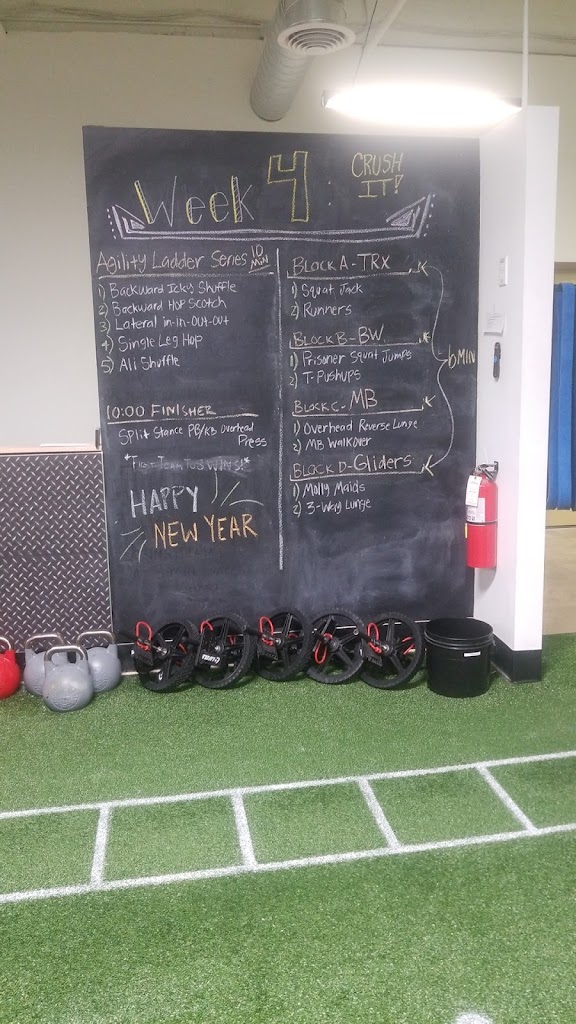 Week 4:
CRUSH
IT!
Agility Ladder Series 10
Min
1) Backward Icky Shuffle
2) Backward Hop Scotch
3) Lateral in-in-out-out
4) Single Leg Hop
5) Ali Shuffle
10:00 FINISHER
Split Stance PB/KB Overhead
Press
HAPPY
NEW YEAR
BLOCK A - TRX
1) Squat Jack
2) Runners
BLOCK B - BW
1) Prisoner Squat Jumps
2) T-Pushups
BLOCK C - MB
1) Overhead Reverse Lunge
2) MB Walkover
BLOCK D - Gliders
1) Molly Maids
2) 3-Way Lunge
6 MIN